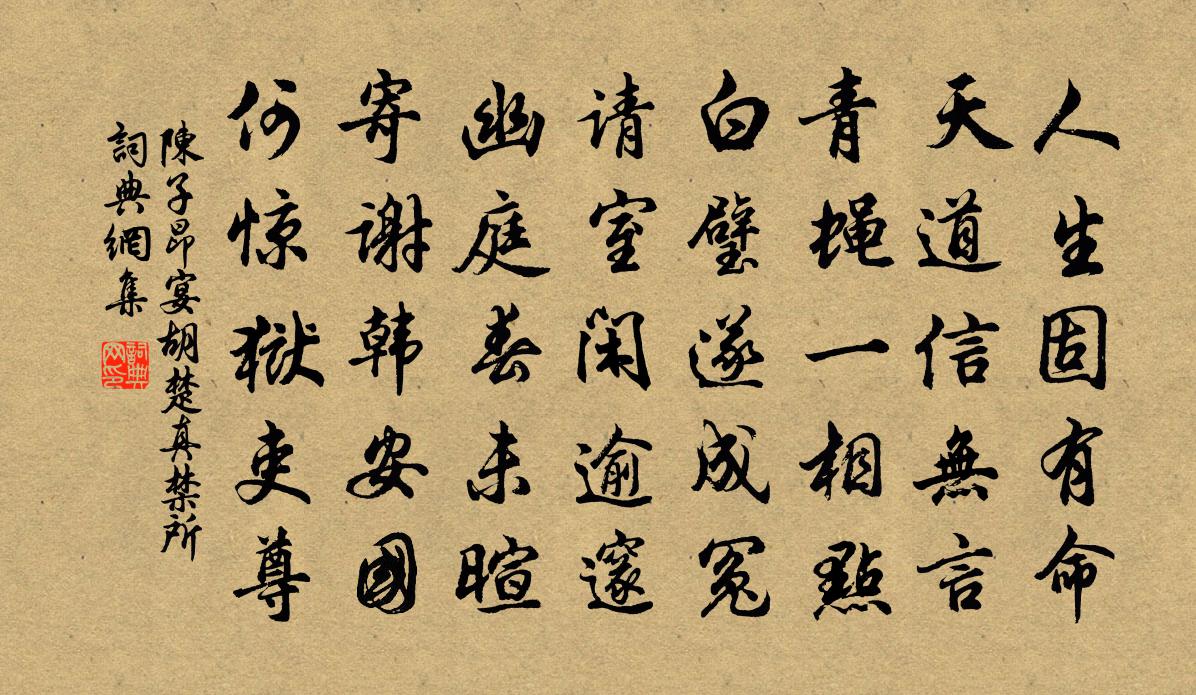 人生固有命
天道信無言
青蝇一相點
白璧遂成冤
请室闲逾邃
幽庭春未暄
寄谢韩安國
何惊獄吏尊
陳子昂宴胡楚真禁所
詞典網集
詞典网印